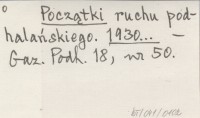 Początki ruchu pod-
halańskiego. 1930... –
Gaz. Podh. 18, nr 50.